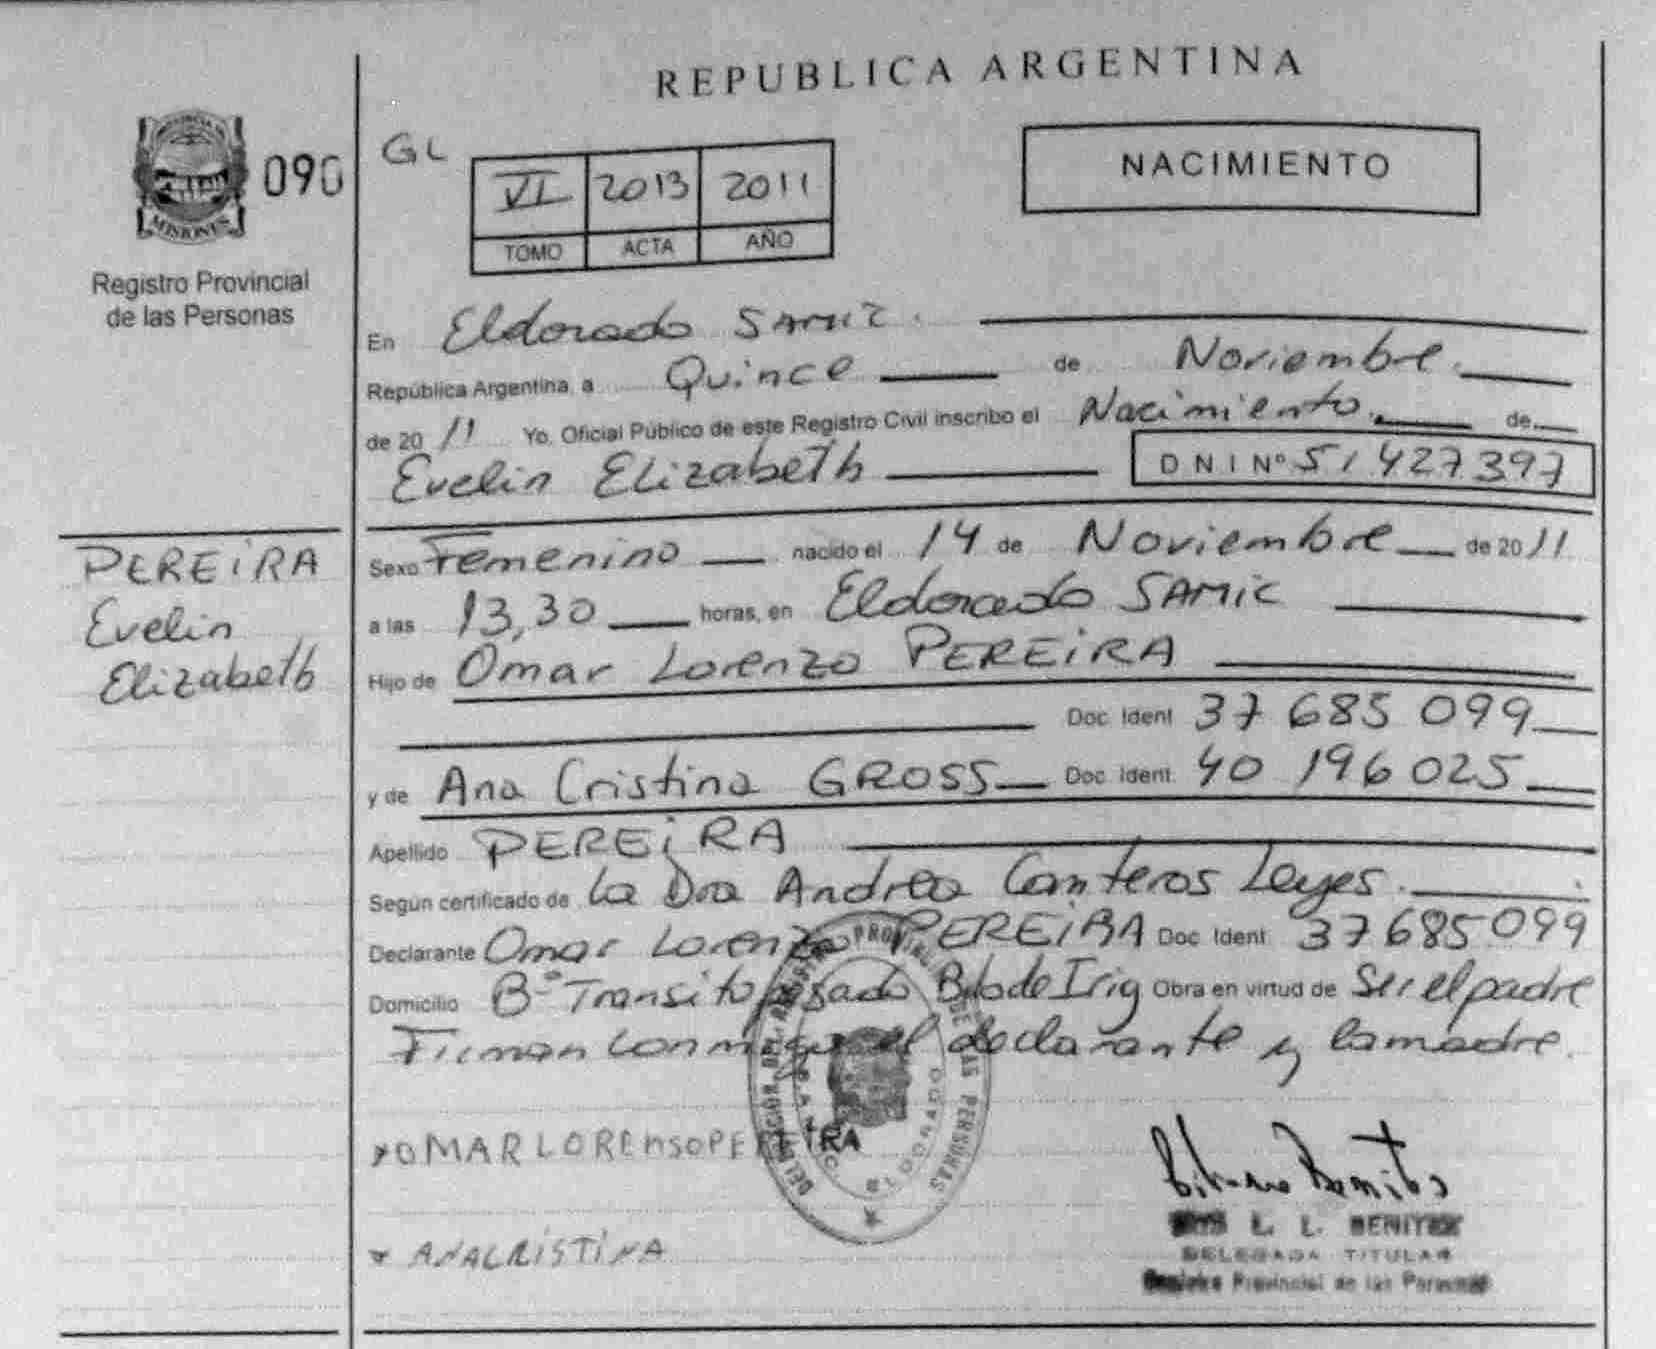 REPUBLICA ARGENTINA
PROVINCIA DE
MISIONES
090
GL
NACIMIENTO
VI 2013 2011
TOMO ACTA AÑO
Registro Provincial
de las Personas
En Eldorado SAMIC.
República Argentina, a Quince de Noviembre
de 20 11 Yo, Oficial Público de este Registro Civil inscribo el Nacimiento de
Evelin Elizabeth DNI Nº 51 427 397
PEREiRA
Evelin
Elizabeth
Sexo Femenino nacido el 14 de Noviembre de 20 11
a las 13,30 horas, en Eldorado SAMIC
Hijo de Omar Lorenzo PEREiRA
Doc. Ident 37 685 099
y de Ana Cristina GROSS Doc. Ident. 40 196 025
Apellido PEREiRA
Según certificado de La Dra Andrea Canteros Leyes.
Declarante Omar Lorenzo PEREiRA Doc. Ident 37 685 099
Domicilio Bº Transito Bdo de Irig Obra en virtud de Ser el padre
Firman conmigo el declarante y la madre.
DELEGACION DEL REGISTRO PROVINCIAL DE LAS PERSONAS
ELDORADO
OMAR LORENSO PEREIRA
ANACRISTINA
L. L. BENITEZ
DELEGADA TITULAR
Registro Provincial de las Personas